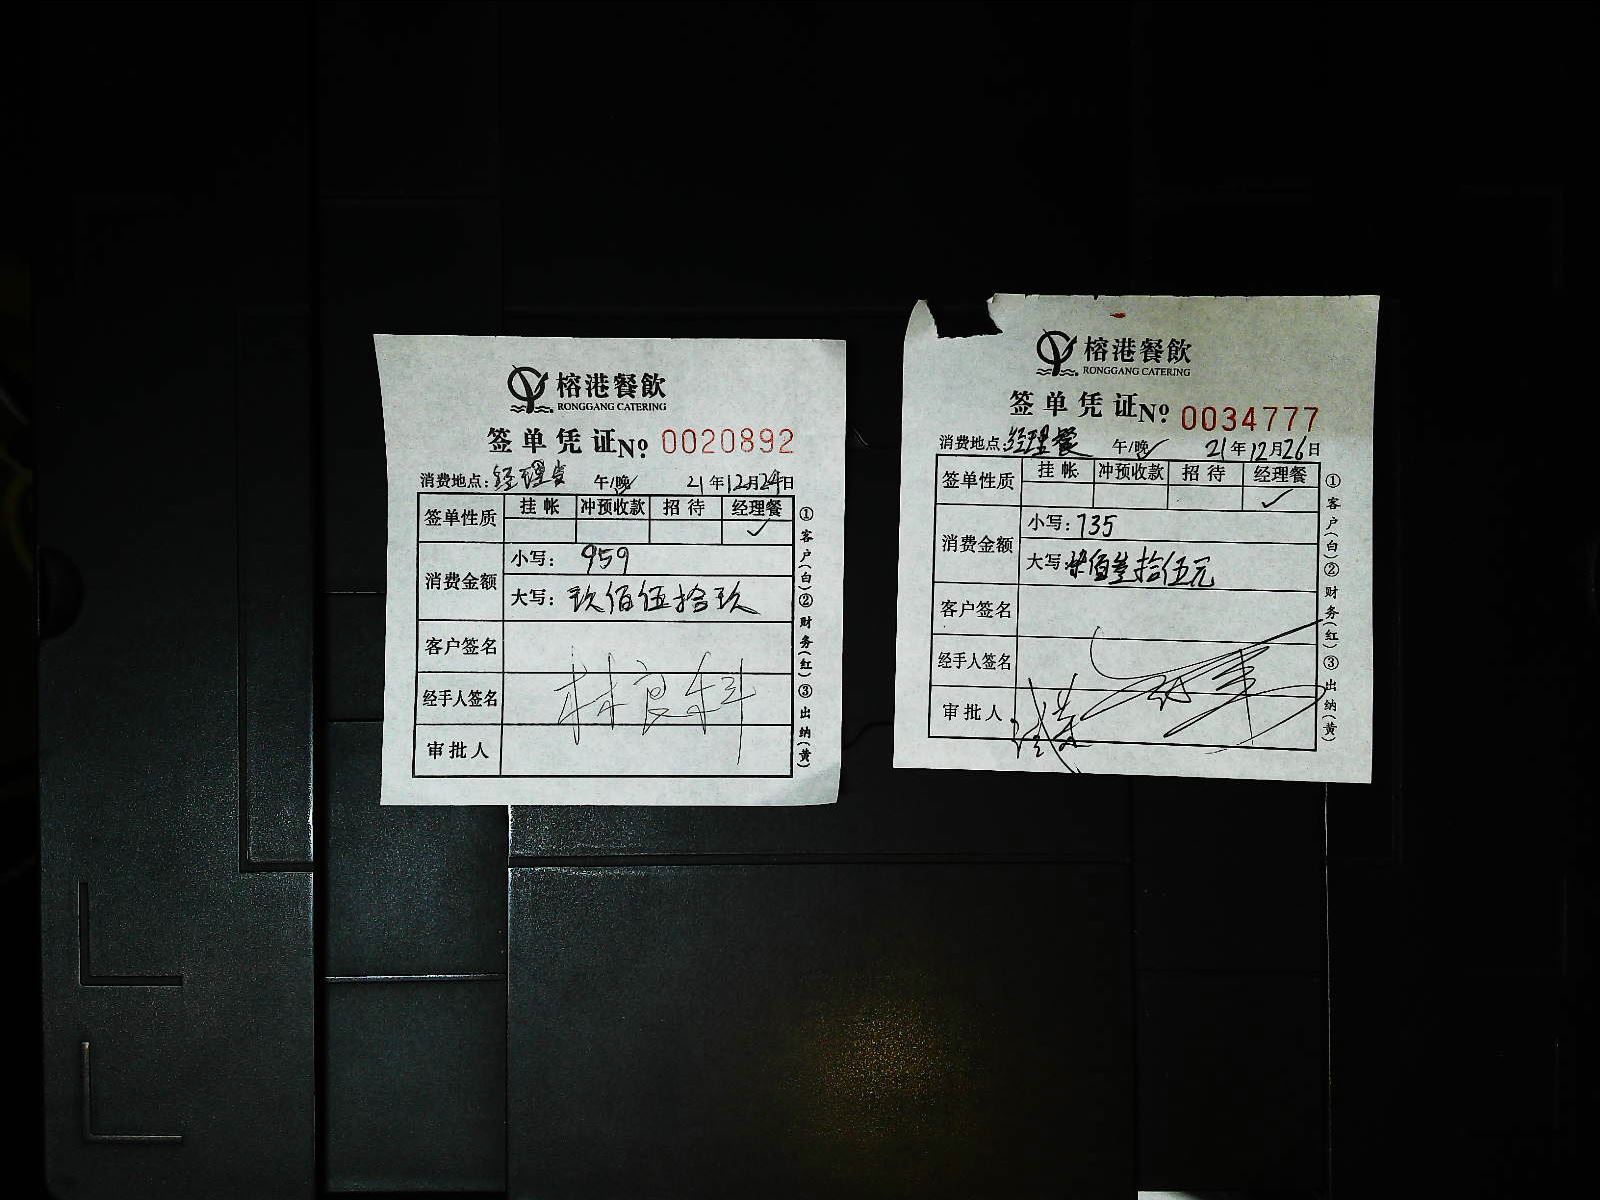 榕港餐飲
RONGGANG CATERING
签单凭证 No: 0020892
消费地点: 经理食 午/晚 21年12月24日
签单性质 挂帐 冲预收款 招待 经理餐
✓
消费金额 小写: 959
大写: 玖佰伍拾玖
客户签名
经手人签名 林良科
审批人
①客户(白)②财务(红)③出纳(黄)
榕港餐飲
RONGGANG CATERING
签单凭证 No: 0034777
消费地点: 经理餐 午/晚 21年12月26日
签单性质 挂帐 冲预收款 招待 经理餐
✓
消费金额 小写: 735
大写: 柒佰叁拾伍元
客户签名
经手人签名
审批人
①客户(白)②财务(红)③出纳(黄)